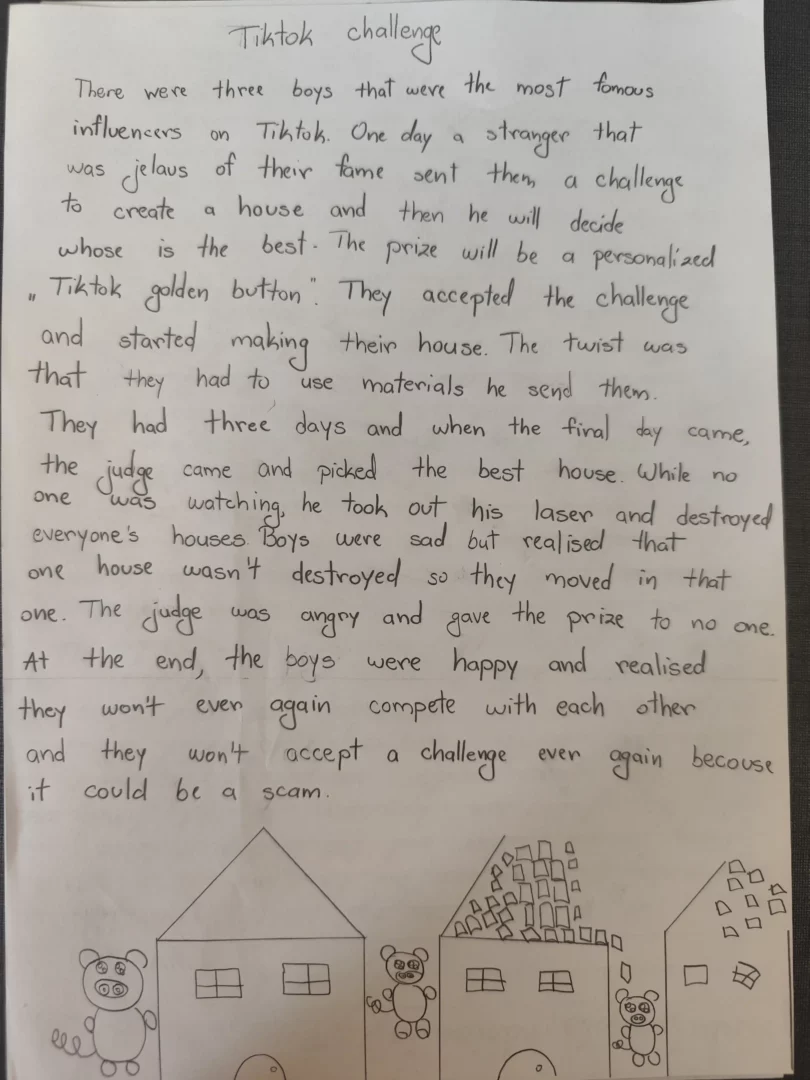 Tiktok challenge
There were three boys that were the most famous
influencers on Tiktok. One day a stranger that
was jelaus of their fame sent them a challenge
to create a house and then he will decide
whose is the best. The prize will be a personalized
„Tiktok golden button". They accepted the challenge
and started making their house. The twist was
that they had to use materials he send them.
They had three days and when the final day came,
the judge came and picked the best house. While no
one was watching, he took out his laser and destroyed
everyone's houses. Boys were sad but realised that
one house wasn't destroyed so they moved in that
one. The judge was angry and gave the prize to no one.
At the end, the boys were happy and realised
they won't ever again compete with each other
and they won't accept a challenge ever again becouse
it could be a scam.